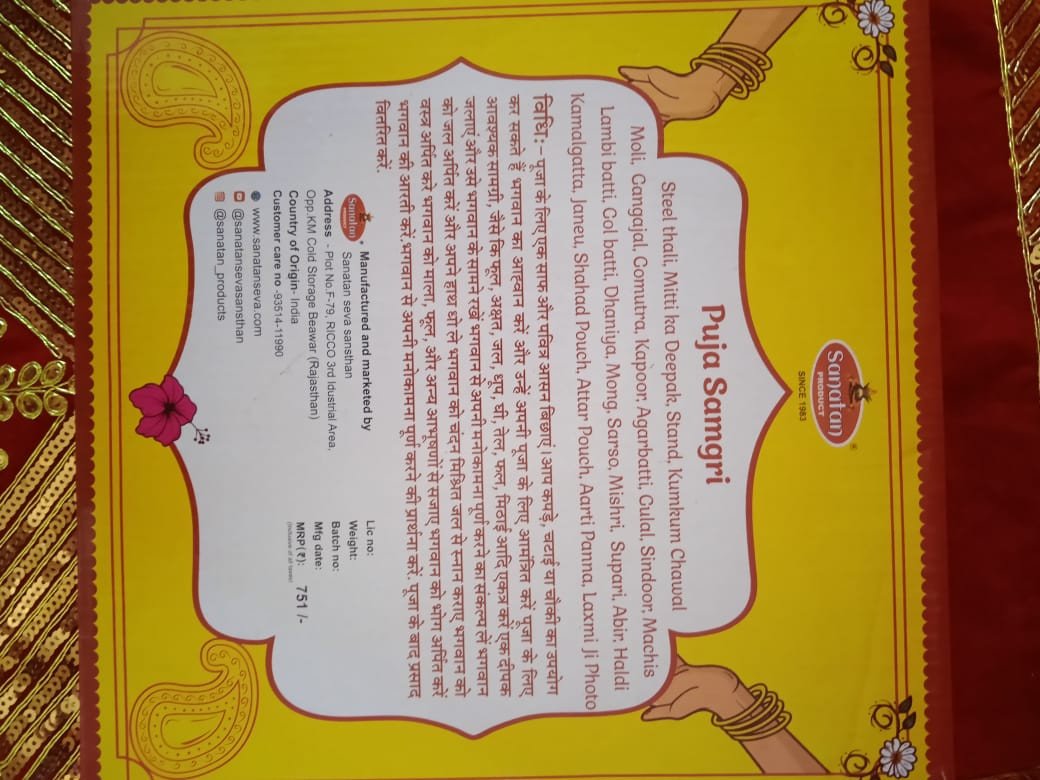 Sanatan
PRODUCT
®
SINCE 1983
Puja Samgri
Steel thali, Mitti ka Deepak, Stand, Kumkum Chawal
Moli, Gangajal, Gomutra, Kapoor, Agarbatti, Gulal, Sindoor, Machis
Lambi batti, Gol batti, Dhaniya, Mong, Sarso, Mishri, Supari, Abir, Haldi
Kamalgatta, Janeu, Shahad Pouch, Attar Pouch, Aarti Panna, Laxmi Ji Photo
विधि:– पूजा के लिए एक साफ और पवित्र आसन बिछाएं। आप कपड़े, चटाई या चौकी का उपयोग
कर सकते हैं भगवान का आह्वान करें और उन्हें अपनी पूजा के लिए आमंत्रित करें पूजा के लिए
आवश्यक सामग्री, जैसे कि फूल, अक्षत, जल, धूप, घी, तेल, फल, मिठाई आदि एकत्र करें एक दीपक
जलाएं और उसे भगवान के सामने रखें भगवान से अपनी मनोकामना पूर्ण करने का संकल्प लें भगवान
को जल अर्पित करें और अपने हाथ धो ले भगवान को चंदन मिश्रित जल से स्नान कराए भगवान को
वस्त्र अर्पित करे भगवान को माला, फूल, और अन्य आभूषणों से सजाए भगवान को भोग अर्पित करें
भगवान की आरती करें. भगवान से अपनी मनोकामना पूर्ण करने की प्रार्थना करें. पूजा के बाद प्रसाद
वितरित करें.
Sanatan
PRODUCT
Manufactured and marketed by
Sanatan seva sansthan
Address - Plot No.F-79, RICCO 3rd Idustrial Area,
Opp.KM Cold Storage Beawar (Rajasthan)
Country of Origin- India
Customer care no -93514-11990
www.sanatanseva.com
@sanatansevasansthan
@sanatan_products
Lic no:
Weight:
Batch no:
Mfg date:
MRP(₹): 751 /-
(Inclusive of all taxes)